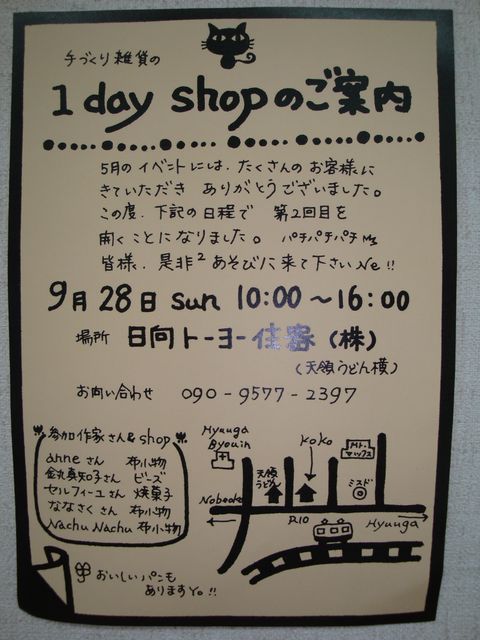 手づくり雑貨の
1 day shopのご案内
5月のイベントには、たくさんのお客様に
きていただき ありがとうございました。
この度、下記の日程で 第2回目を
開くことになりました。 パチパチパチ
皆様、是非² あそびに来て下さいNe!!
9月28日 sun 10:00〜16:00
場所 日向トーヨー住器(株)
(天領うどん横)
お問い合わせ 090-9577-2397
参加作家さん&shop
anneさん 布小物
金丸真知子さん ビーズ
セルフィーユさん 焼菓子
ななさくさん 布小物
Nachu Nachu 布小物
おいしいパンも
ありますYo.!!
Hyuuga
Byouin
KoKo
Mr.
マックス
天領
うどん
ミスド
Nobeoka
R10
Hyuuga